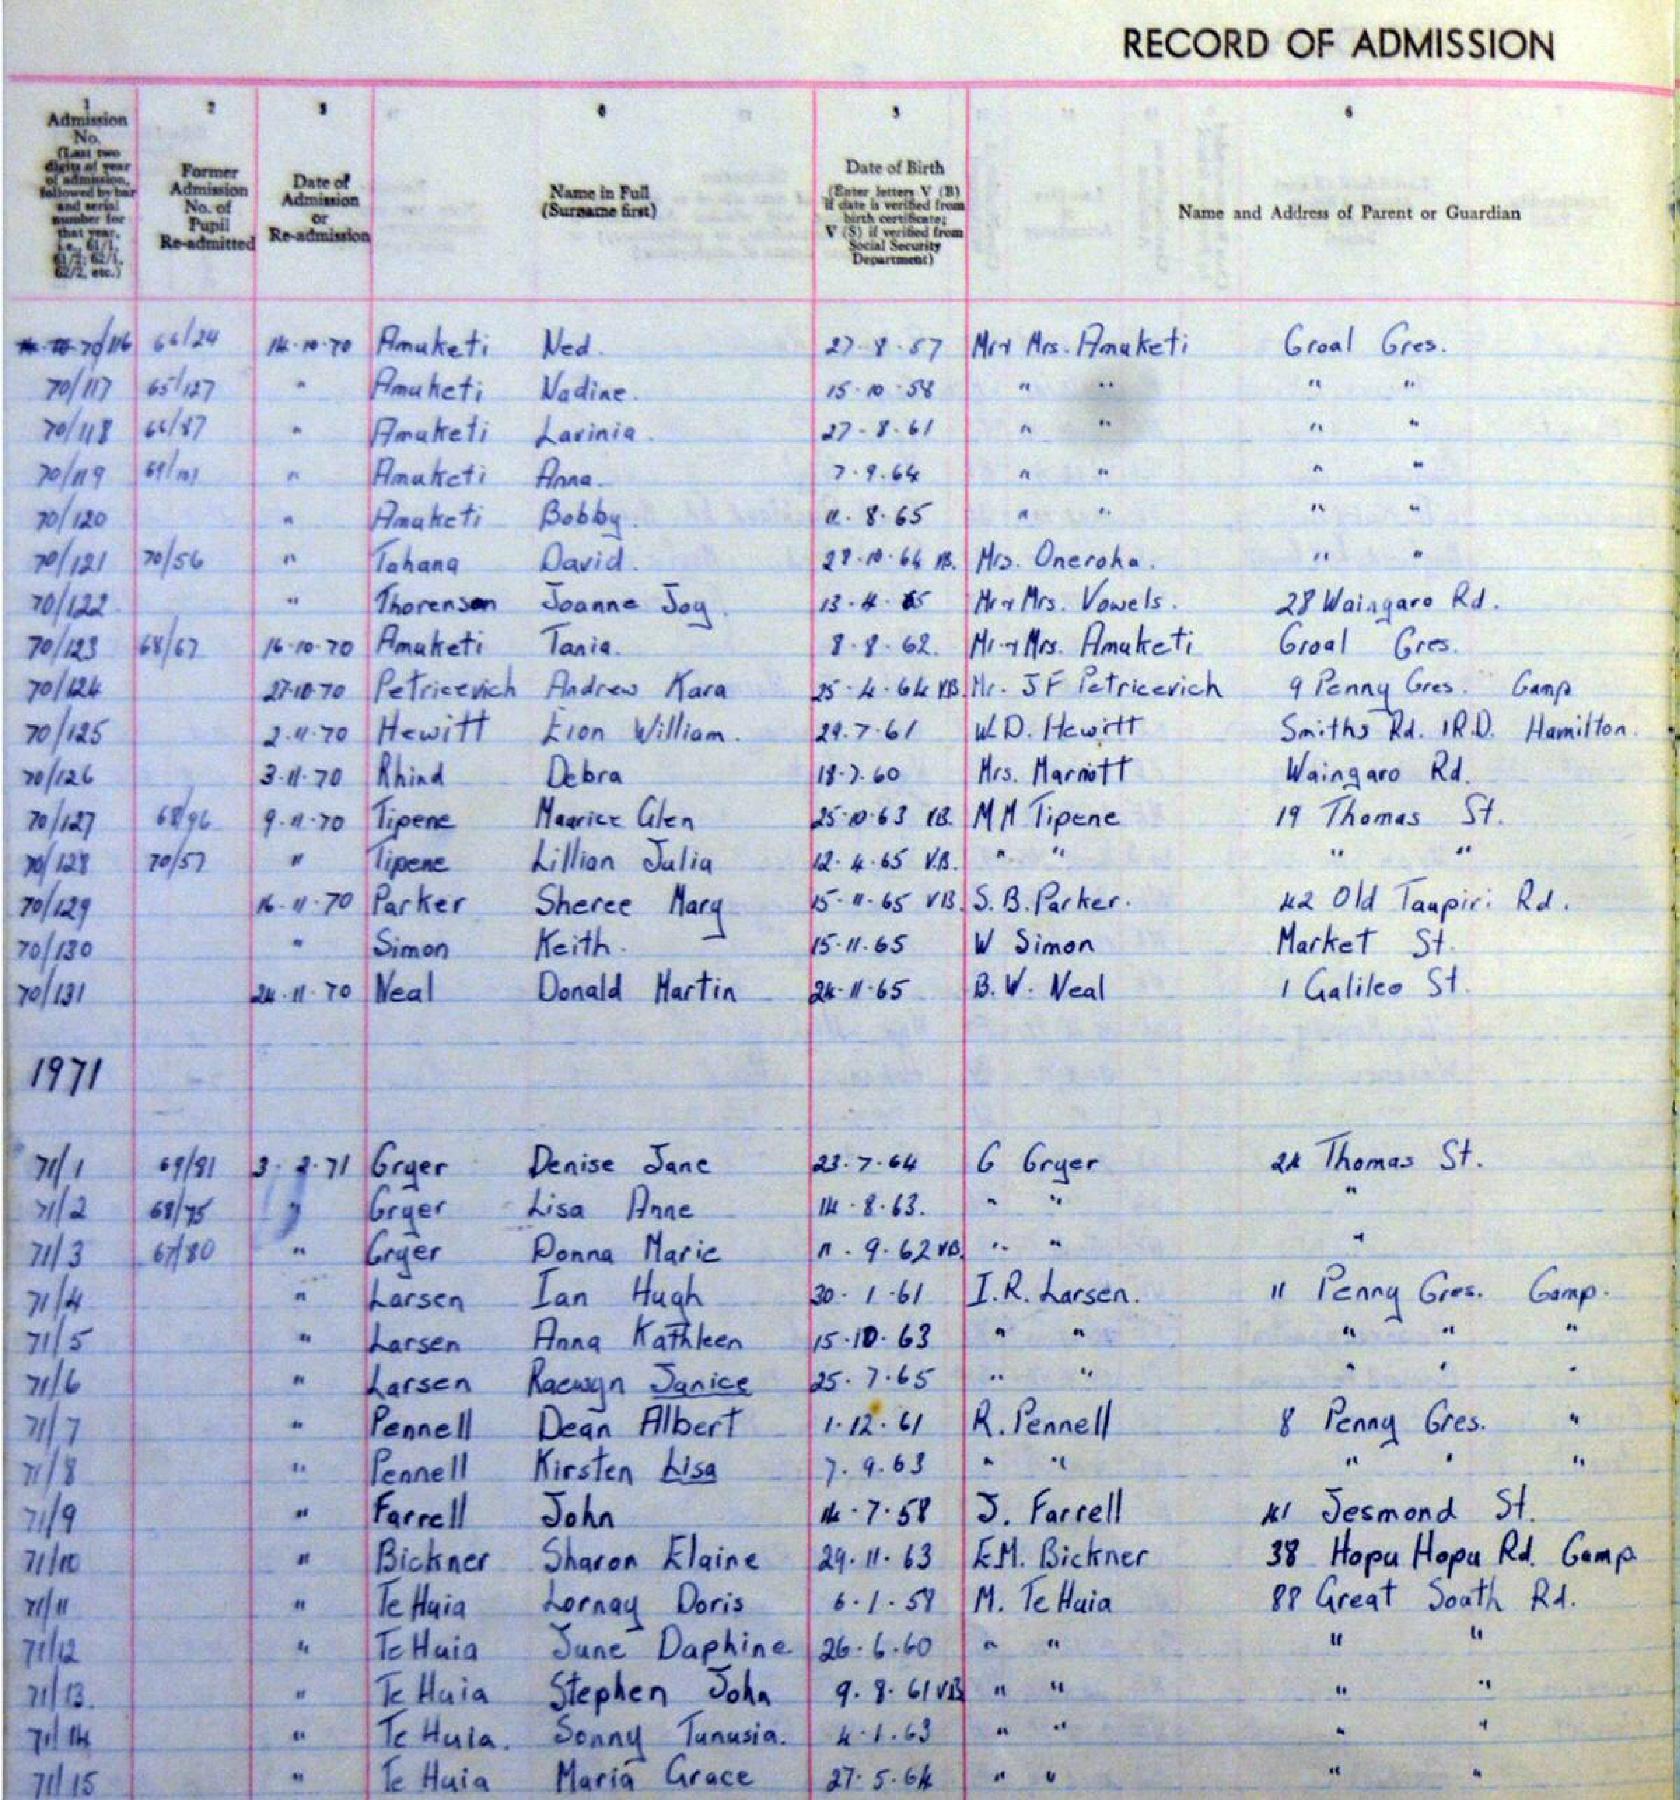 RECORD OF ADMISSION
1 2 3 4 5 6
Admission No. (Last two digits of year of admission, followed by bar and serial number for that year, i.e., 61/1, 61/2; 62/1, 62/2, etc.)
Former Admission No. of Pupil Re-admitted
Date of Admission or Re-admission
Name in Full (Surname first)
Date of Birth (Enter letters V (B) if date is verified from birth certificate; V (S) if verified from Social Security Department)
Name and Address of Parent or Guardian
70/116 66/24 14·10·70 Amuketi Ned. 27·8·57 Mr & Mrs. Amuketi Croal Cres.
70/117 65/127 " Amuketi Nadine. 15·10·58 " " " "
70/118 66/87 " Amuketi Lavinia. 27·8·61 " " " "
70/119 69/101 " Amuketi Anna. 7·9·64 " " " "
70/120 " Amuketi Bobby. 11·8·65 " " " "
70/121 70/56 " Tahana David. ·10· VB. Mrs. Oneroha. " "
70/122 " Thorenson Joanne Joy. 13·4·65 Mr & Mrs. Vowels. 28 Waingaro Rd.
70/123 68/67 16·10·70 Amuketi Tania. 8·8·62. Mr & Mrs. Amuketi Croal Cres.
70/124 27·10·70 Petricevich Andrew Kara 25·4·64 VB. Mr. J F Petricevich 9 Penny Cres. Camp
70/125 2·11·70 Hewitt Eion William. 29·7·61 W.D. Hewitt Smiths Rd. 1R.D. Hamilton.
70/126 3·11·70 Rhind Debra 18·7·60 Mrs. Marriott Waingaro Rd.
70/127 68/96 9·11·70 Tipene Maurice Glen 25·10·63 VB. M M Tipene 19 Thomas St.
70/128 70/57 " Tipene Lillian Julia 12·4·65 V.B. " " " "
70/129 16·11·70 Parker Sheree Mary 15·11·65 VB. S.B. Parker. 42 Old Taupiri Rd.
70/130 " Simon Keith. 15·11·65 W Simon Market St.
70/131 24·11·70 Neal Donald Martin 24·11·65 B.W. Neal 1 Galileo St.
1971
71/1 69/81 3·2·71 Cryer Denise Jane 23·7·64 G Cryer 24 Thomas St.
71/2 68/75 " Cryer Lisa Anne 14·8·63. " " "
71/3 67/80 " Cryer Donna Marie 11·9·62 VB. " " "
71/4 " Larsen Ian Hugh 30·1·61 I.R. Larsen. 11 Penny Cres. Camp.
71/5 " Larsen Anna Kathleen 15·10·63 " " " " "
71/6 " Larsen Raewyn Janice 25·7·65 " " " " "
71/7 " Pennell Dean Albert 1·12·61 R. Pennell 8 Penny Cres. "
71/8 " Pennell Kirsten Lisa 7·9·63 " " " " "
71/9 " Farrell John 14·7·58 J. Farrell 41 Jesmond St.
71/10 " Bickner Sharon Elaine 29·11·63 E.M. Bickner 38 Hopu Hopu Rd. Camp
71/11 " Te Huia Lornay Doris 6·1·58 M. Te Huia 88 Great South Rd.
71/12 " Te Huia June Daphine 26·6·60 " " " "
71/13. " Te Huia Stephen John 9·8·61 VB " " " "
71/14 " Te Huia. Sonny Tunusia. 4·1·63 " " " "
71/15 " Te Huia Maria Grace 27·5·64 " " " "